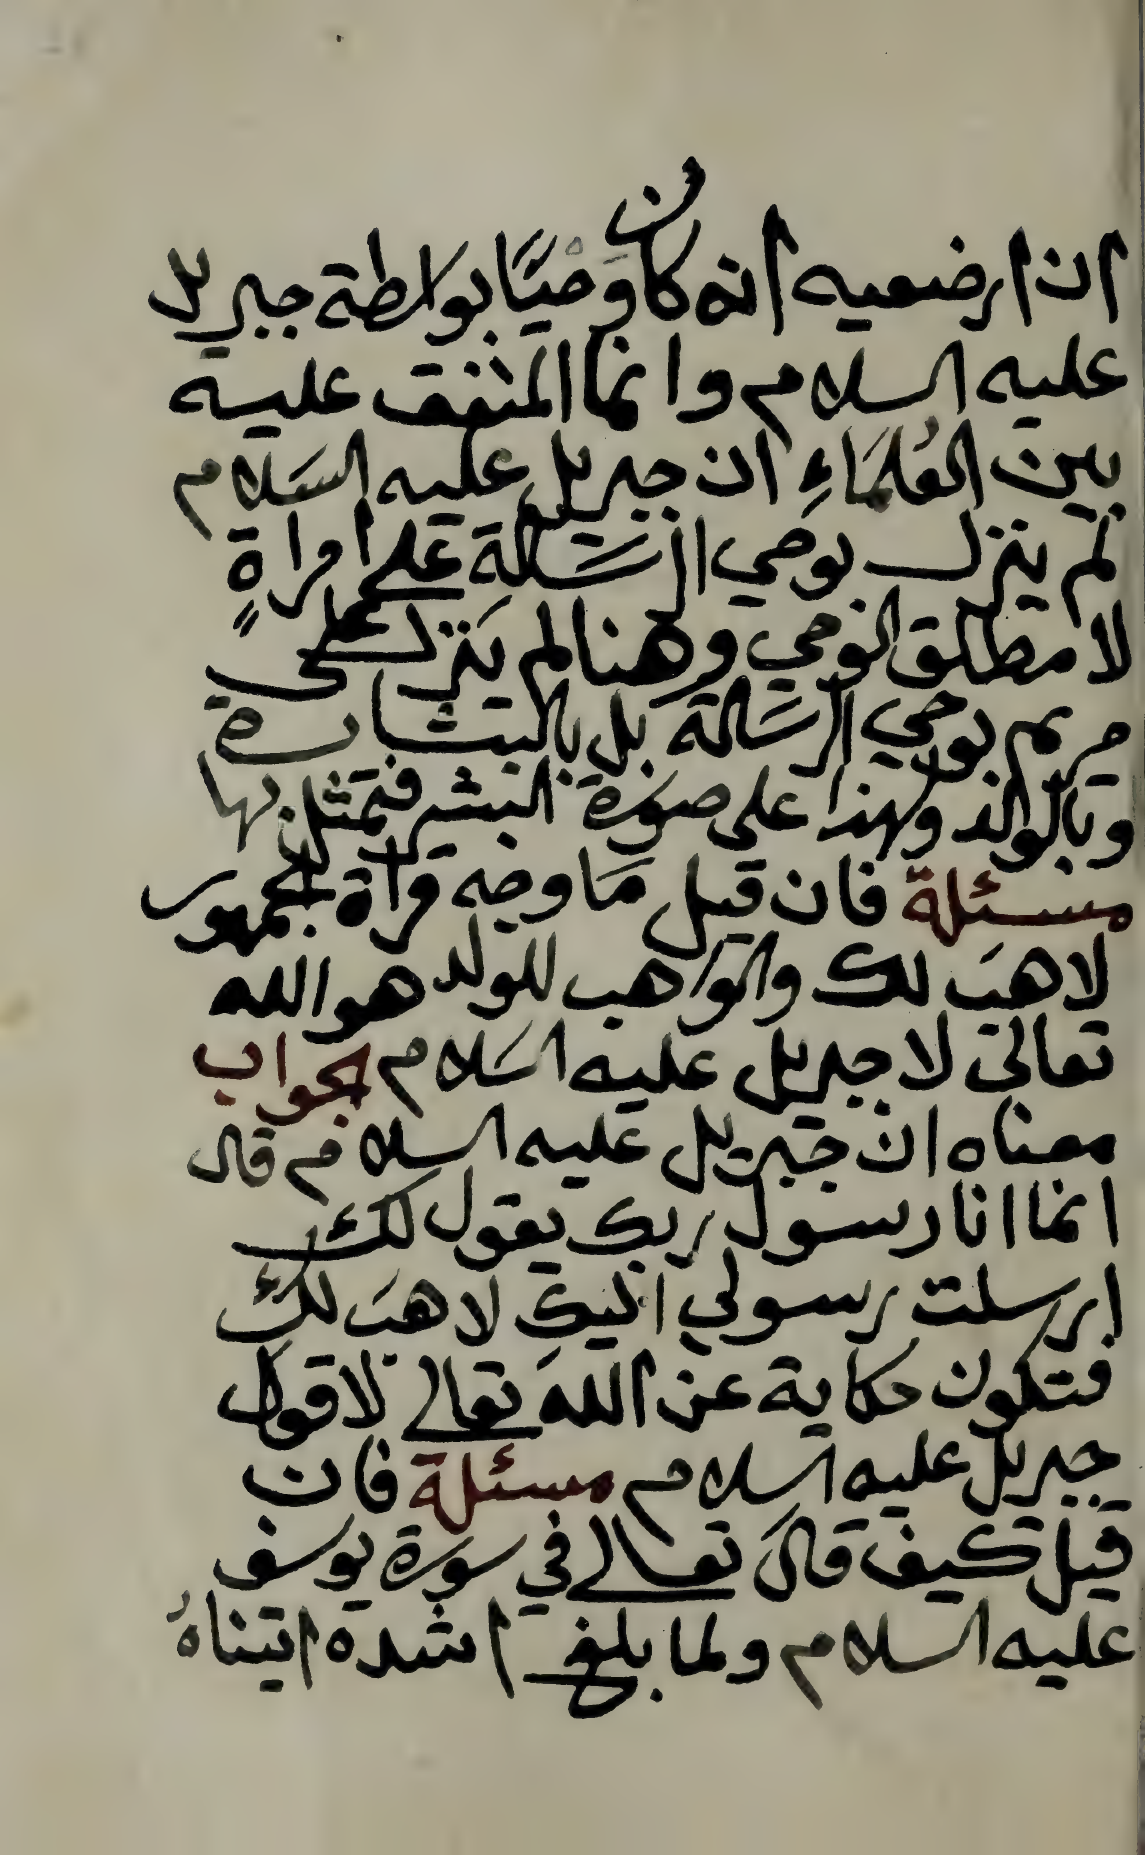 ان ارضعيه انه كان وَحْيًا بواسطة جبريل
عليه السلام وانما المتفق عليه
بين العُلَمَاءِ ان جبريل عليه السَلام
لم ينزل بوحي الرسَالة على امراةٍ
لا مطلق الوحي وهنا لم يَنزل على
مريم بوحي الرسَالة بل بالبشارة
وبالولد ولهذا على صورة البشر فتمثل لها
مسئلة فان قيل مَا وجه قراة الجمهور
لاهبَ لك والواهب للولد هو الله
تعالى لا جبريل عليه السَلام الجواب
معناه ان جبريل عليه السلام قال
انما انا رسول ربك يقول لك
ارسلت رسولي اليك لاهبَ لك
فتكون حكاية عن الله تعالى لا قول
جبريل عليه السلام مسئلة فان
قيل كيف قالَ تعالى في سورة يوسف
عليه السلام ولما بلغ اشده اتيناهُ